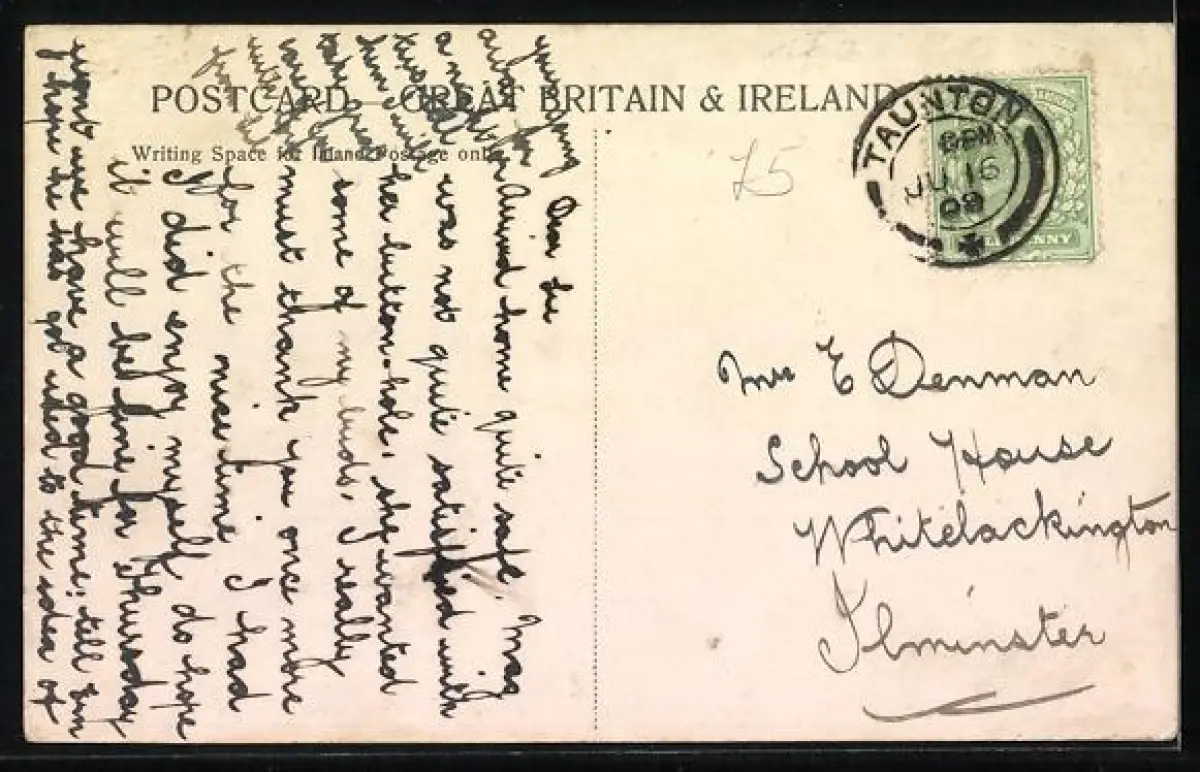 POSTCARD — GREAT BRITAIN & IRELAND
Writing Space for Inland Postage only.
£5
TAUNTON
6 PM
JU 16
09
HALFPENNY
Mrs E Denman
School House
Whitelackington
Ilminster
Dear Lu
Arrived home quite safe. Mag
was not quite satisfied with
her button-hole, she wanted
some of my buds. I really
must thank you once more
for the nice time I had
I did enjoy myself do hope
it will be fine for Thursday
wont we have a good time; tell Em
I hope he has got used to the idea of